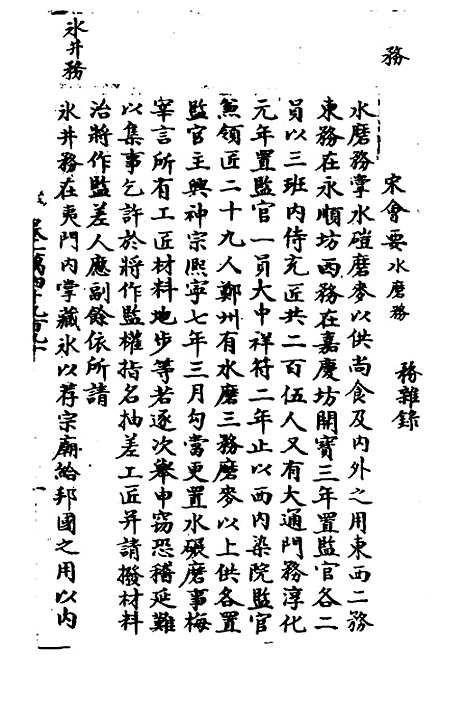 務
宋會要 水磨務 務雜錄
水磨務掌水磑磨麥以供尚食及內外之用東西二務
東務在永順坊西務在嘉慶坊開寶三年置監官各二
員以三班內侍充匠共二百伍人又有大通門務淳化
元年置監官一員大中祥符二年止以西內染院監官
兼領匠二十九人鄭州有水磨三務磨麥以上供各置
監官主典神宗熙寧七年三月勾當更置水碾磨事梅
宰言所有工匠材料地步等若逐次舉申竊恐稽延難
以集事乞許於將作監權指名抽差工匠并請撥材料
治將作監差人應副餘依所請
氷井務
氷井務在夷門內掌藏氷以荐宗廟給邦國之用以內
卷一萬四千九百九十
一